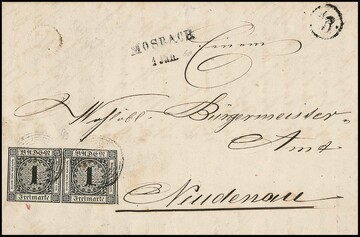 MOSBACH
1 Jan.
Einem
Wohllöbl. Bürgermeister-
Amt
Neudenau
BADEN BADEN
1 1
Freimarke Freimarke